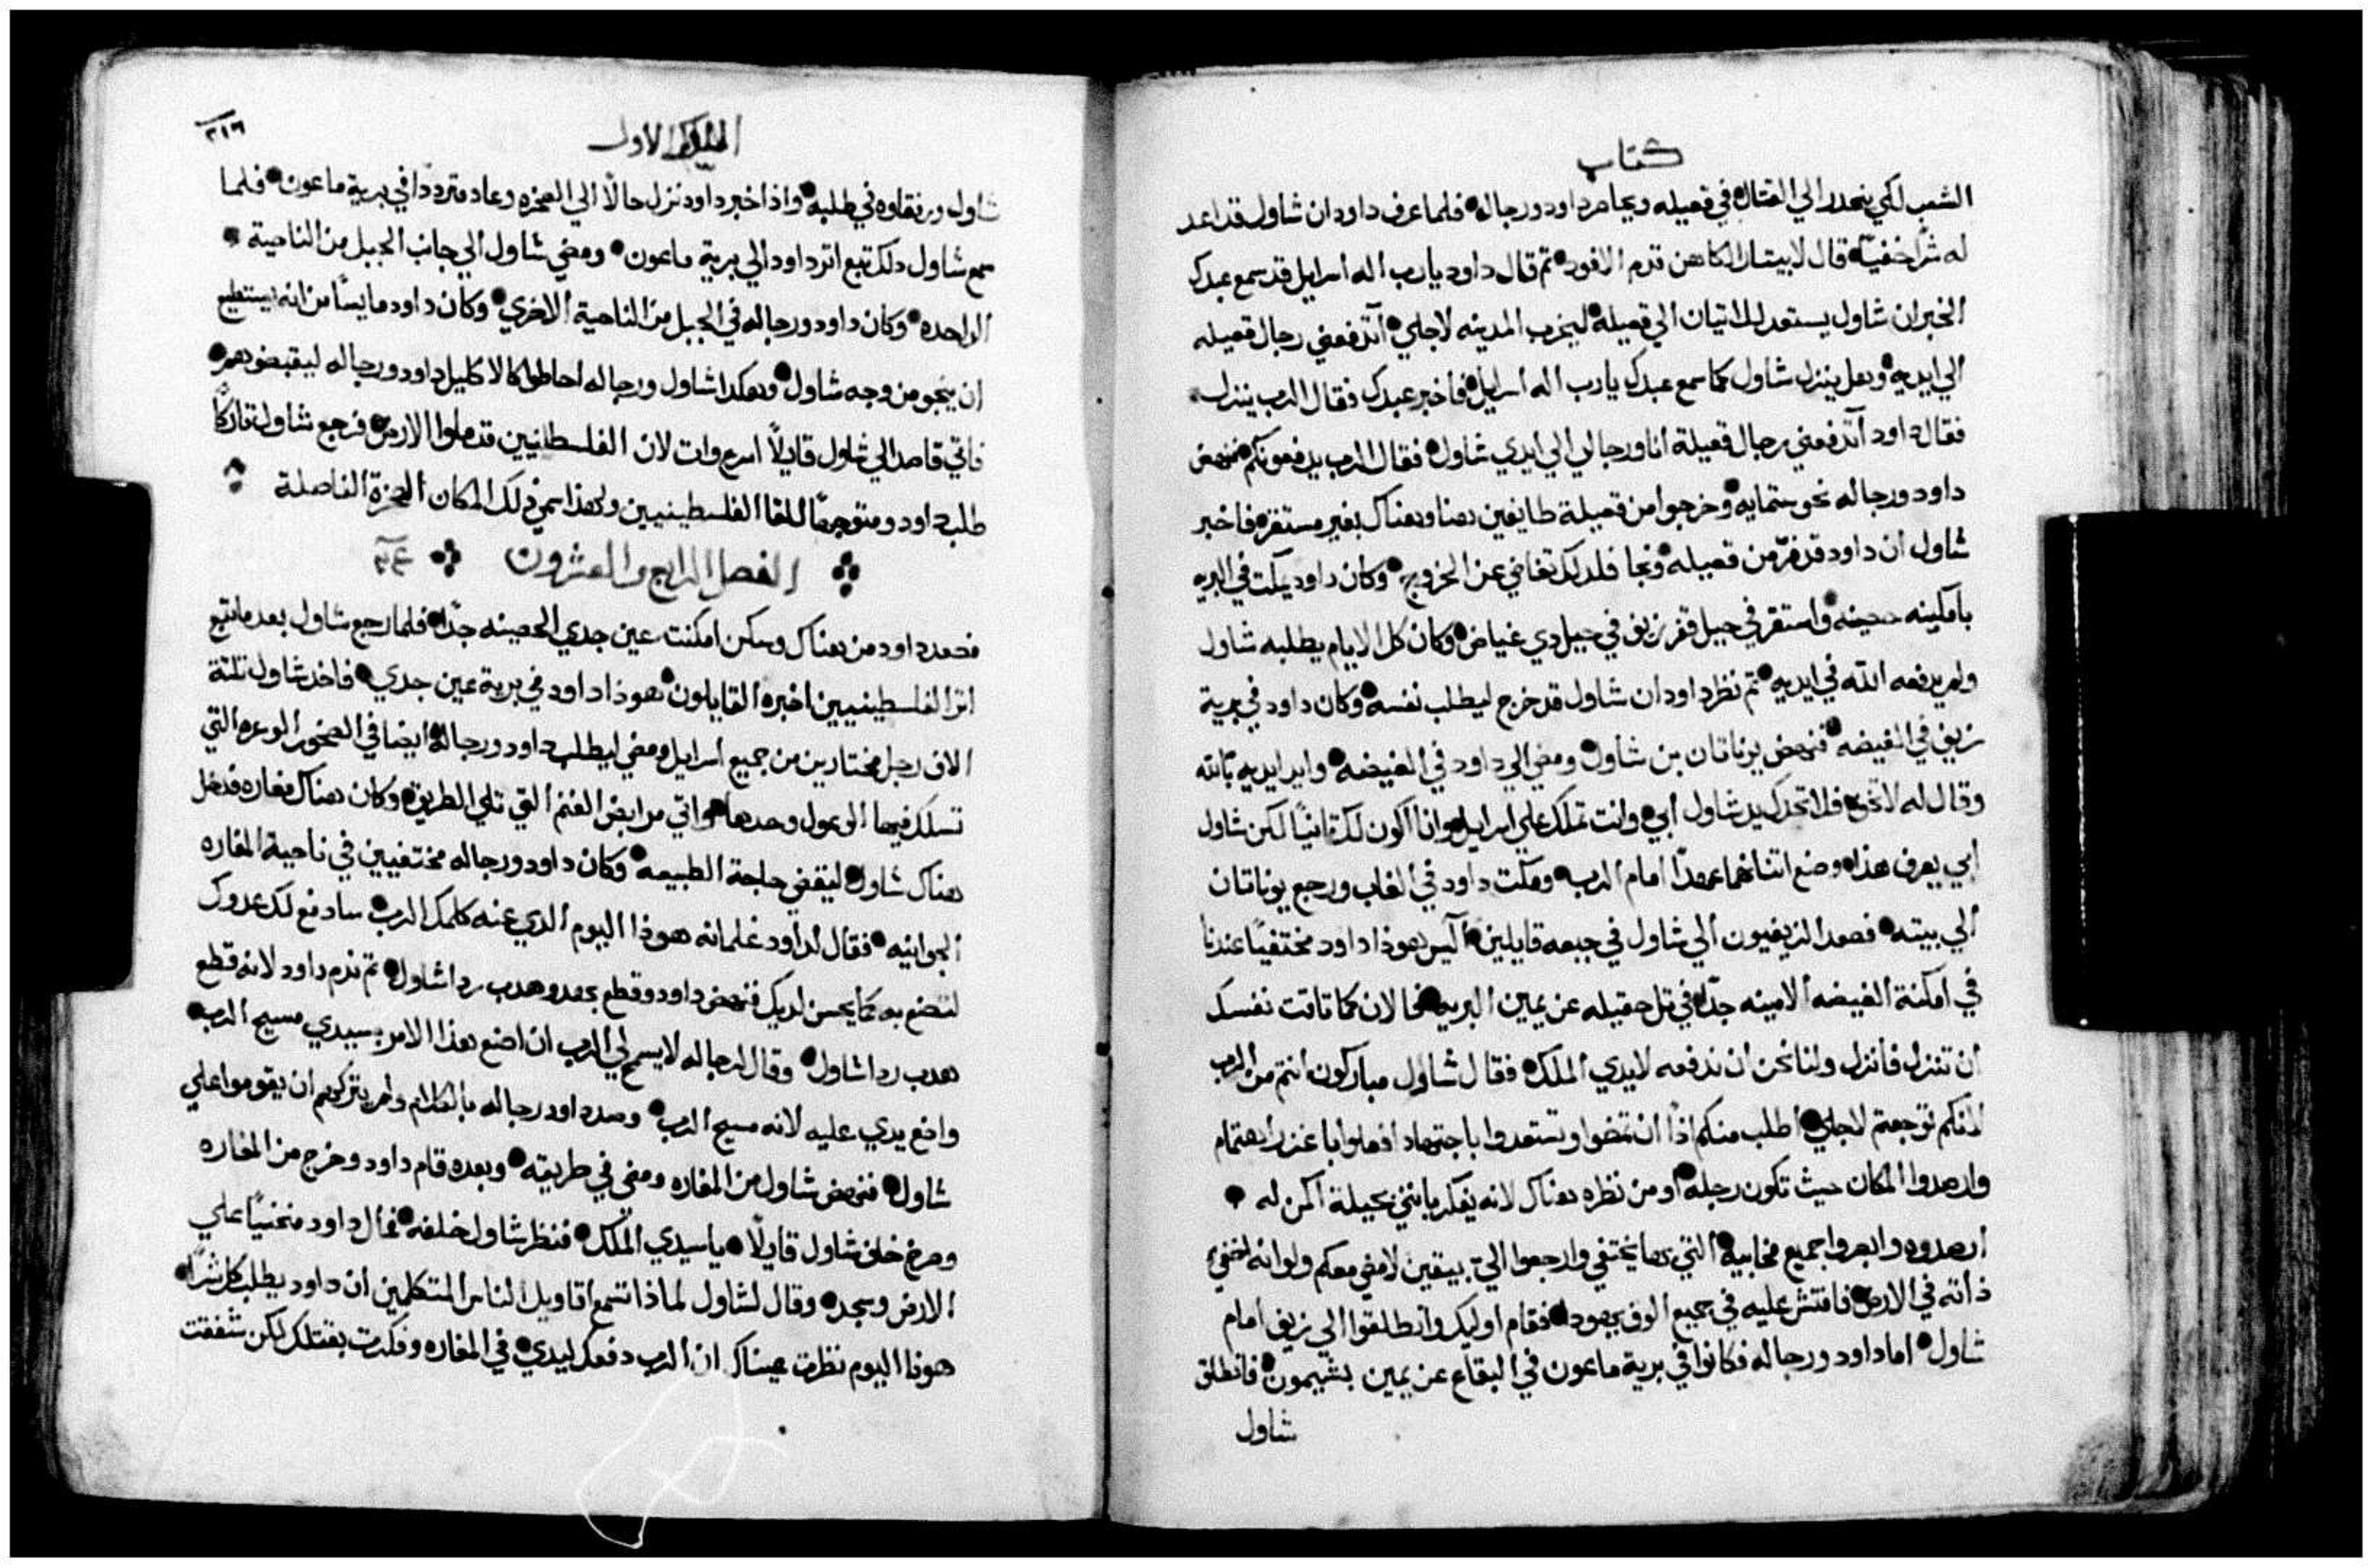 كتاب
الشعب لكي ينحدر الي القتال في قعيله ويحاصر داود ورجاله فلما عرف داود ان شاول قد اعد
له شرا خفيا قال لابيتار الكاهن قدم الافود تم قال داود يارب اله اسرايل قد سمع عبدك
الخبر ان شاول يستعد للاتيان الي قعيله ليخرب المدينه لاجلي آتدفعني رجال قعيله
الي ايديه وهل ينزل شاول كما سمع عبدك يارب اله اسرايل فاخبر عبدك فقال الرب ينزل
فقال داود آتدفعني رجال قعيلة انا ورجالي الي ايدي شاول فقال الرب يدفعونكم فنهض
داود ورجاله نحو ستمايه وخرجوا من قعيلة طايفين هنا وهناك بغير مستقر فاخبر
شاول ان داود قد فر من قعيله ونجا فلدلك تغاضي عن الخروج وكان داود يمكت في البريه
بامكينه حصينه واستقر في جبل قفر زيف في جبل دي غياض وكان كل الايام يطلبه شاول
ولم يدفعه الله في ايديه تم نظر داود ان شاول قد خرج ليطلب نفسه وكان داود في برية
زيف في الغيضه فنهض يوناتان بن شاول ومضي الي داود في الغيضه وايد ايديه بالله
وقال له لا تخف فلا تجدك يد شاول ابي وانت تملك علي اسرايل وانا اكون لك تانيا لكن شاول
ابي يعرف هذا وضع اتنانهما عهدا امام الرب ومكت داود في الغاب ورجع يوناتان
الي بيته فصعد الزيفيون الي شاول في جبعه قايلين آليس هوذا داود مختفيا عندنا
في امكنة الغيضه الامينه جدا في تل حقيله عن يمين البريه فالان كما تاقت نفسك
ان تنزل فانزل ولنا نحن ان ندفعه لايدي الملك فقال شاول مباركون انتم من الرب
لانكم توجعتم لاجلي اطلب منكم اذا ان تمضوا وتستعدوا باجتهاد افعلوا باغزر اهتمام
وارصدوا المكان حيث تكون رجله او من نظره هناك لانه يفكر بانني بحيلة اكمن له
ارصدوه وابصروا جميع مخابيه التي بها يختفي وارجعوا الي بيقين لامضي معكم ولو انه اختفي
ذاته في الارض فافتش عليه في جميع الوف يهودا فقام اوليك وانطلقوا الي زيف امام
شاول اما داود ورجاله فكانوا في برية ماعون في البقاع عن يمين بشيمون فانطلق
شاول
الملوك الاول
٣١٦
شاول ورفقاوه في طلبه واذ اخبر داود نزل حالا الي الصخره وعاد مترددا في برية ماعون فلما
سمع شاول دلك تبع اتر داود الي برية ماعون ومضي شاول الي جانب الجبل من الناحية
الواحده وكان داود ورجاله في الجبل من الناحية الاخري وكان داود مايسا من انه يستطيع
ان ينجو من وجه شاول وهكدا شاول ورجاله احاطوا كالاكليل داود ورجاله ليقبضوهم
فاتي قاصد الي شاول قايلا اسرع وات لان الفلسطانيين قد ملوا الارض فرجع شاول تاركا
طلب داود ومتوجها للقا الفلسطينيين ولهذا سمي ذلك المكان الصخرة الفاصلة
الفصل الرابع والعشرون
فصعد داود من هناك وسكن امكنت عين جدي الحصينه جدا فلما رجع شاول بعد ما تبع
اتر الفلسطينيين اخبره القايلون هوذا داود في برية عين جدي فاخد شاول تلتة
الاف رجل مختارين من جميع اسرايل ومضي ليطلب داود ورجاله ايضا في الصخور الوعره التي
تسلك فيها الوعول وحدها واتي مرابض الغنم التي تلي الطريق وكان هناك مغاره فدخل
هناك شاول ليقضي حاجة الطبيعه وكان داود ورجاله مختفيين في ناحية المغاره
الجوانيه فقال لداود غلمانه هوذا اليوم الدي عنه كلمك الرب سادفع لك عدوك
لتضع به كما يحسن لديك فنهض داود وقطع بهدو هدب ردا شاول تم ندم داود لانه قطع
هدب ردا شاول وقال لرجاله لا يسمح لي الرب ان اضع هذا الامر بسيدي مسيح الرب
واضع يدي عليه لانه مسيح الرب وصد داود رجاله بالكلام ولم يتركهم ان يقوموا علي
شاول فنهض شاول من المغاره ومضي في طريقه وبعده قام داود وخرج من المغاره
وصرخ خلف شاول قايلا ياسيدي الملك فنظر شاول خلفه فمال داود منحنيا علي
الارض وسجد وقال لشاول لماذا تسمع اقاويل الناس المتكلمين ان داود يطلب كل شرا
هوذا اليوم نظرت عيناك ان الرب دفعك ليدي في المغاره وفكرت بقتلك لكن شفقت